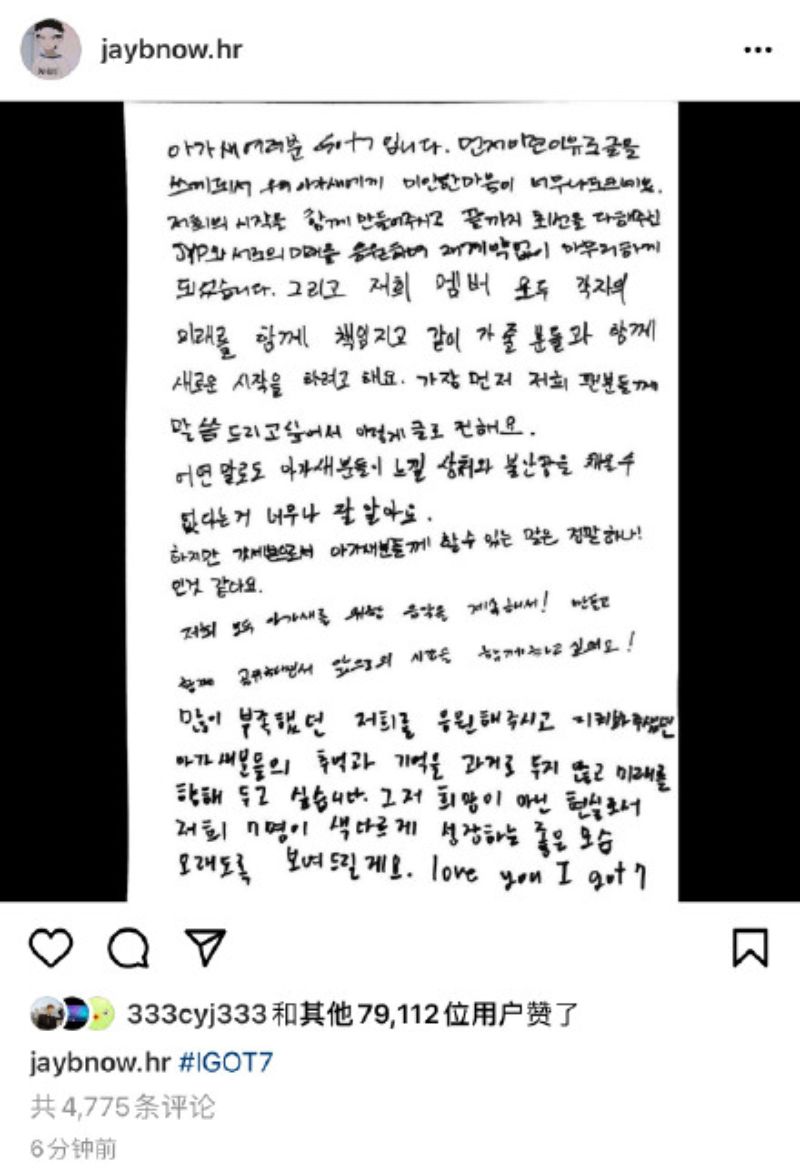 jaybnow.hr
아가새여러분 GOT7 입니다. 먼저이런이유로글을
쓰게되서 우리 아가새에게 미안한마음이 너무나도크네요.
저희의 시작을 함께 만들어주시고 끝까지 최선을 다해주신
JYP와 서로의 미래를 응원하며 재계약없이 마무리하게
되었습니다. 그리고 저희 멤버 모두 각자의
미래를 함께 책임지고 같이 가 줄 분들과 함께
새로운 시작을 하려고 해요. 가장 먼저 저희 팬분들께
말씀 드리고싶어서 이렇게 글로 전해요.
어떤 말로도 아가새분들이 느낄 상처와 불안감을 채울수
없다는거 너무나 잘 알아요.
하지만 갓세븐으로서 아가새분들께 할수 있는 말은 정말하나!
인것 같다요.
저희 모두 아가새를 위한 음악을 계속해서! 만들고
함께 공유하면서 앞으로의 시간을 함께하고싶어요!
많이 부족했던 저희를 응원해주시고 지켜봐주셨던
아가새분들의 추억과 기억을 과거로 두지 않고 미래를
향해 두고 싶습니다. 그저 희망이 아닌 현실로서
저희 7명이 색다르게 성장하는 좋은 모습
오래도록 보여드릴게요. love you I got7
333cyj333和其他79,112位用户赞了
jaybnow.hr #IGOT7
共4,775条评论
6分钟前